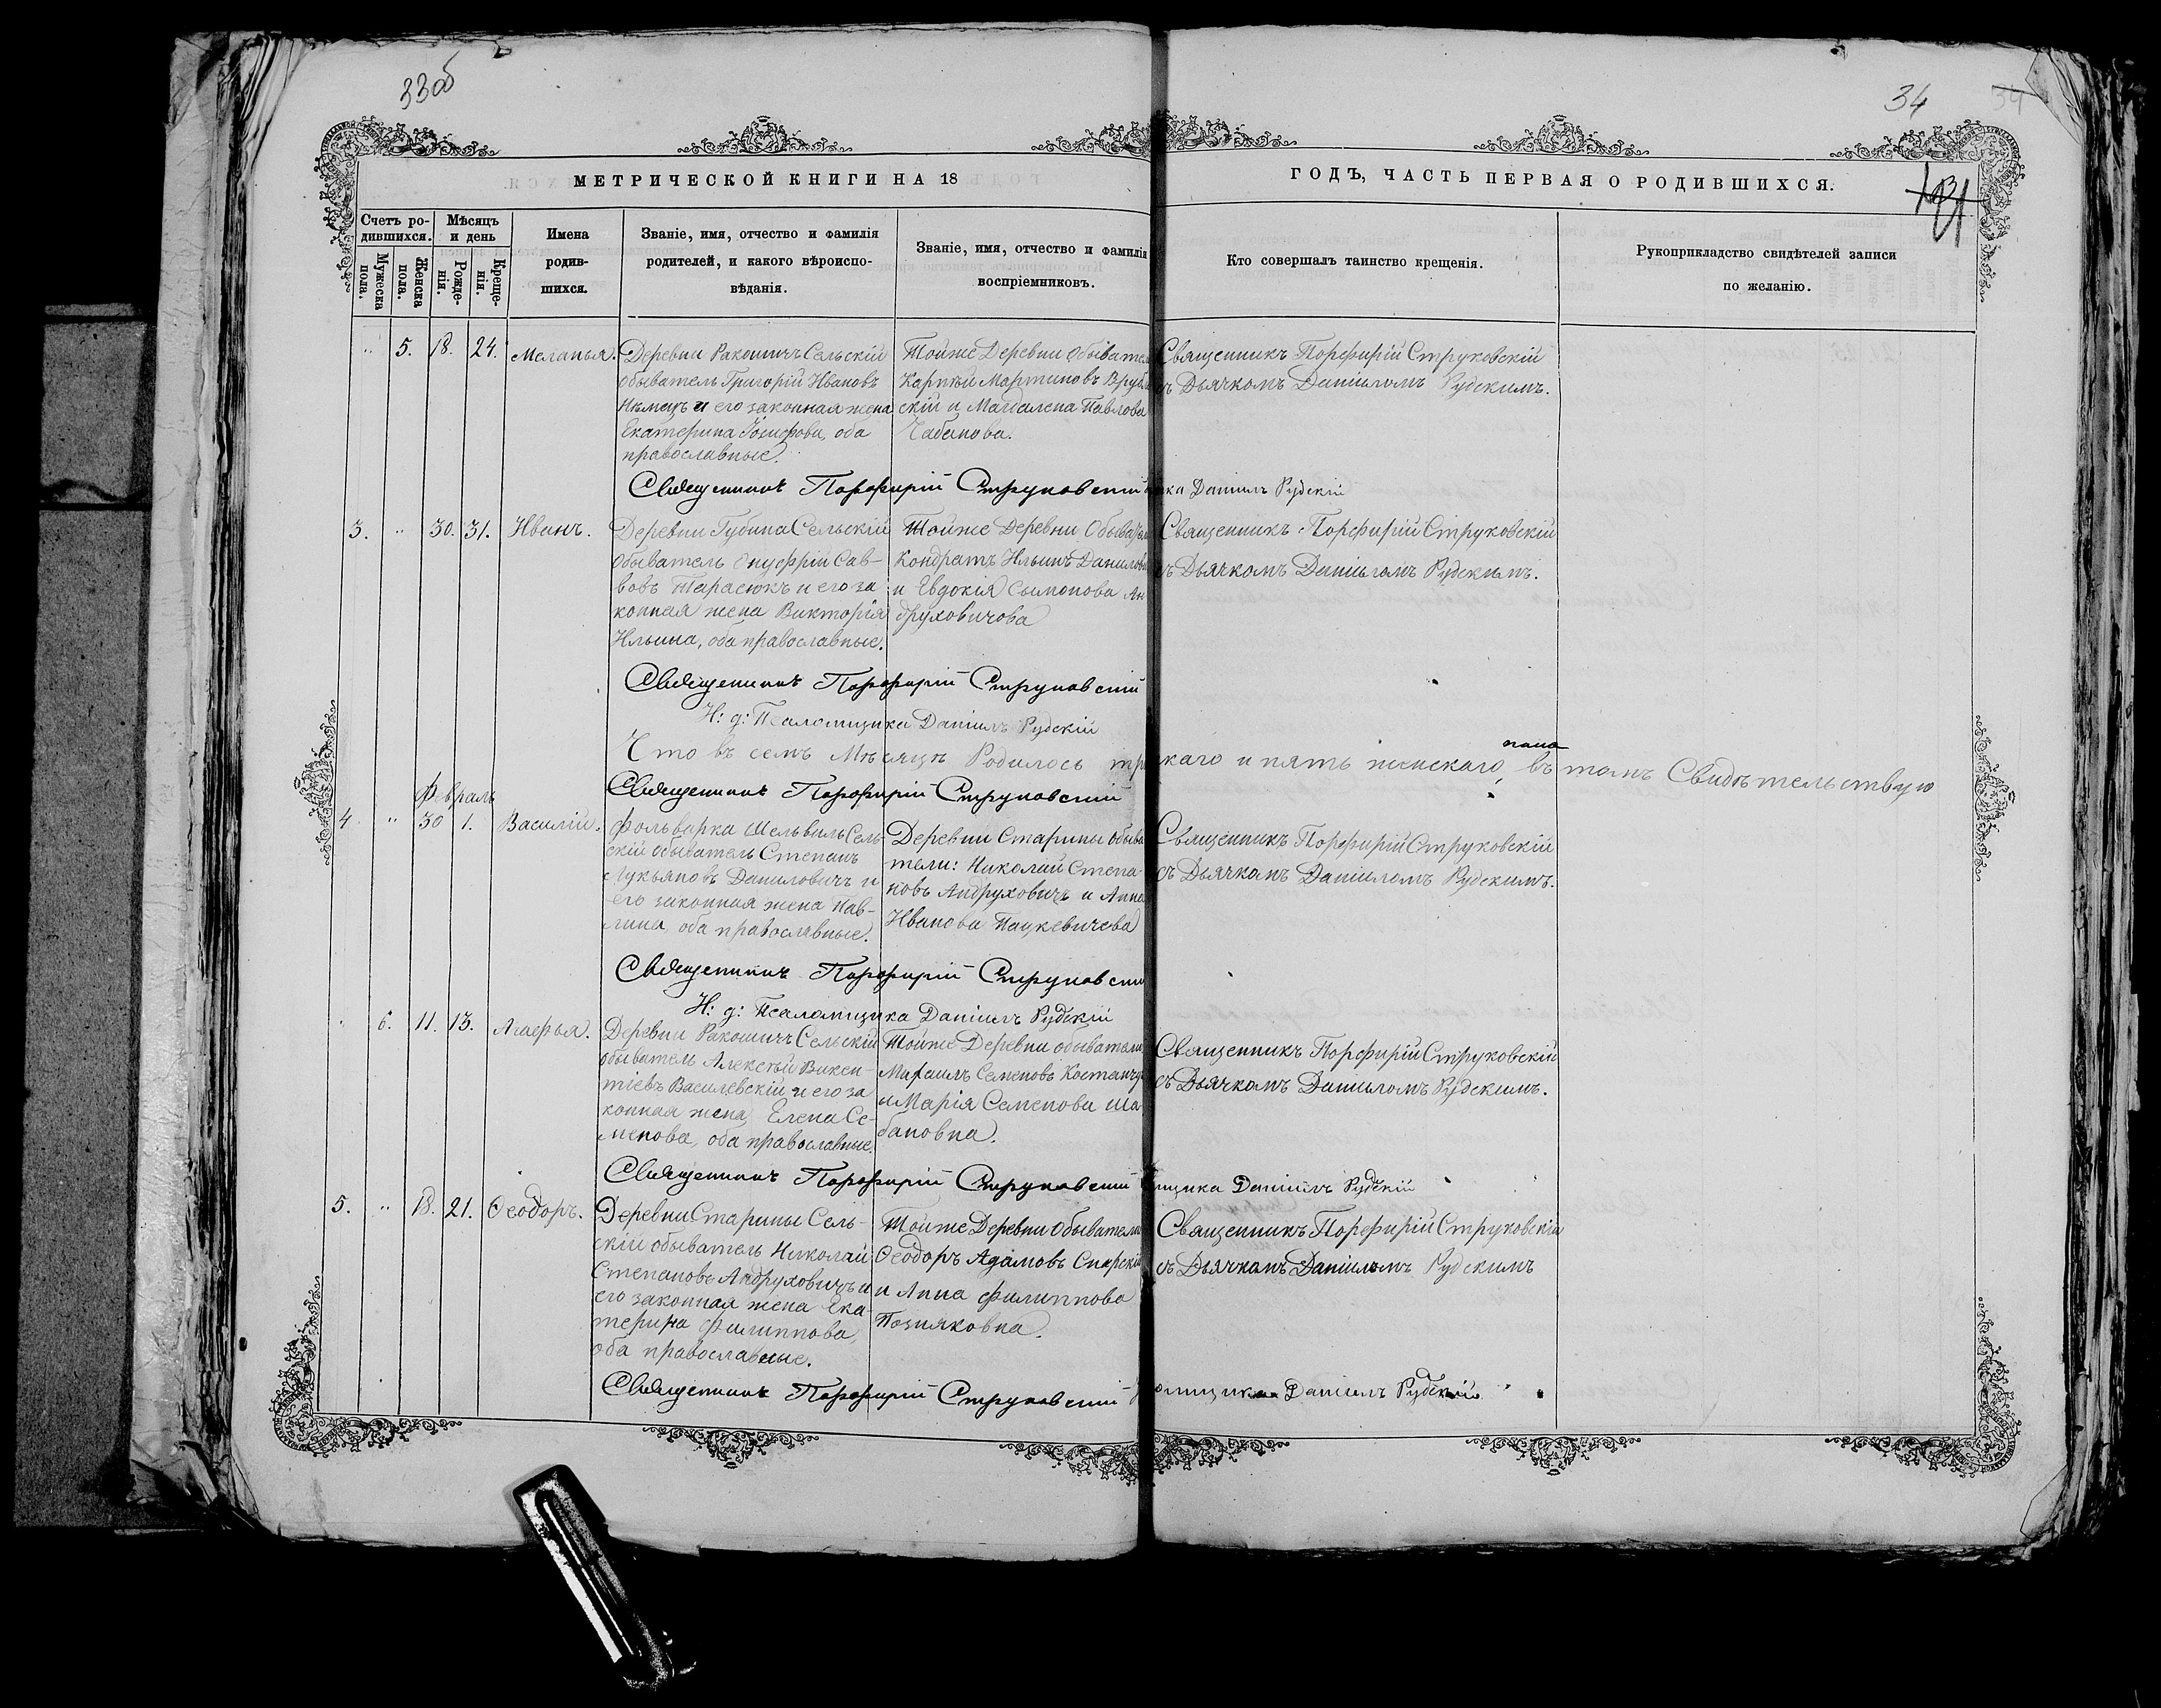 33об
34
34
МЕТРИЧЕСКОЙ КНИГИ НА 18
ГОДЪ, ЧАСТЬ ПЕРВАЯ О РОДИВШИХСЯ.
Счетъ ро-
дившихся.
Мужеска
пола.
Женска
пола.
Мѣсяцъ
и день
Рожде-
нія.
Креще-
нія.
Имена
родив-
шихся.
Званіе, имя, отчество и фамилія
родителей, и какого вѣроиспо-
вѣданія.
Званіе, имя, отчество и фамилія
воспріемниковъ.
Кто совершалъ таинство крещенія.
Рукоприкладство свидѣтелей записи
по желанію.
" 5. 18. 24. Меланья.
Деревни Ракошичъ Сельскій
обыватель Григорій Ивановъ
Нѣмецъ и его законная жена
Екатерина Іосифова, оба
православные.
Тойже Деревни обывате
Карпѣй Мартиновъ Врубл
скій и Магдалена Павлова
Чабанова.
Священникъ Порфирій Струковскій
съ Дьячкомъ Даніиломъ Рудскимъ.
Священникъ Порфирій Струковскій
ка Даніилъ Рудскій
3. " 30. 31. Иванъ.
Деревни Губина Сельскій
обыватель Онуфрій Сав-
вовъ Тарасюкъ и его за
конная жена Викторія
Ильина, оба православные.
Тойже Деревни Обывате
Кондратъ Ильинъ Данилов
и Евдокія Сымонова Ан
друховичова
Священникъ Порфирій Струковскій
съ Дьячкомъ Даніиломъ Рудскимъ.
Священникъ Порфирій Струковскій
И: д: Псаломщика Даніилъ Рудскій
Что въ семъ Мѣсяцѣ Родилось тр каго и пять женскаго пола въ томъ Свидѣтельствую
Священникъ Порфирій Струковскій
Февраль
4 " 30 1. Василій.
Фольварка Шельвиль Сель-
скій обыватель Степанъ
Лукьяновъ Даниловичъ и
его законная жена Пав-
лина, оба православные.
Деревни Старины обыва
тели: Николай Степа-
новъ Андруховичъ и Анна
Иванова Пацкевичева
Священникъ Порфирій Струковскій
съ Дьячкомъ Даніиломъ Рудскимъ.
Священникъ Порфирій Струковскі
И: д: Псаломщика Даніилъ Рудскій
" 6. 11. 13. Агафья.
Деревни Ракошичъ Сельскій
обыватель Алексѣй Викен-
тіевъ Василевскій и его за
конная жена Елена Се-
менова, оба православные.
Тойже Деревни обыватели
Михаилъ Семеновъ Костанчу
и Марія Семенова Ша
бановна.
Священникъ Порфирій Струковскій
съ Дьячкомъ Даніиломъ Рудскимъ.
Священникъ Порфирій Струковскій
мщика Даніилъ Рудскій
5. " 18. 21. Ѳеодоръ.
Деревни Старины Сель-
скій обыватель Николай
Степановъ Андруховичъ и
его законная жена Ека-
терина Филиппова,
оба православные.
Тойже Деревни Обыватели
Ѳеодоръ Адамовъ Снарскій
и Анна Филиппова
Познякoвна.
Священникъ Порфирій Струковскій
съ Дьячкомъ Даніиломъ Рудскимъ
Священникъ Порфирій Струковскій
омщика Даніилъ Рудскій